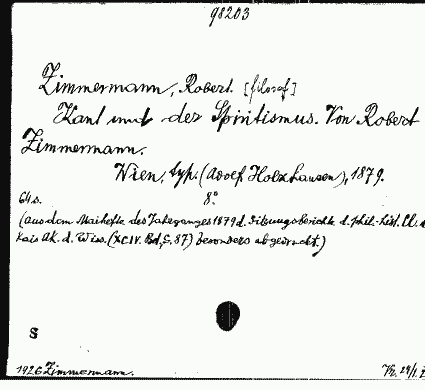 98203
Zimmermann, Robert. [filosof]
Kant und der Spiritismus. Von Robert
Zimmermann.
Wien, typ. (Adolf Holzhausen), 1879.
8°
64 s.
(aus dem Maihefte des Jahrganges 1879 d. Sitzungsberichte d. phil.-hist. Cl. d.
Kais Ak. d. Wiss. (XCIV. Bd, S. 87) besonders abgedruckt.)
S
1926 Zimmermann.